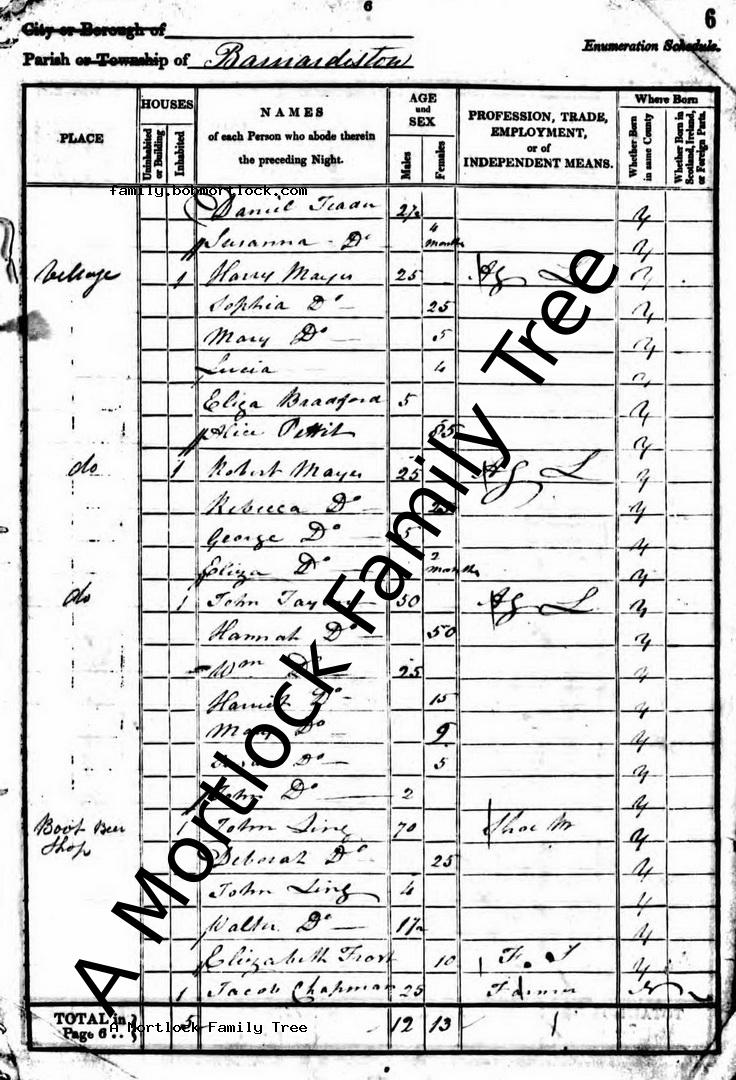 6
6
City or Borough of
Enumeration Schedule.
Parish or Township of Barnardiston
PLACE
HOUSES
Uninhabited or Building
Inhabited
NAMES
of each Person who abode therein
the preceding Night.
AGE
and
SEX
Males
Females
PROFESSION, TRADE,
EMPLOYMENT,
or of
INDEPENDENT MEANS.
Where Born
Whether Born in same County
Whether Born in Scotland, Ireland, or Foreign Parts.
family.bobmortlock.com
Daniel 2½ y
Susanna Do 4 months y
Village 1 Harry Mayes 25 Ag L y
Sophia Do 25 y
Mary Do 5 y
Lucia 4 y
Eliza Bradford 5 y
Alice Pettit 85 y
do 1 Robert Mayes 25 Ag L y
Rebecca Do y
George Do 5 y
Eliza Do 2 months y
do 1 John 50 Ag L y
Hannah Do 50 y
Wm Do 25 y
Harriet Do 15 y
Mary Do 9 y
Do 5 y
John Do 2 y
Boot Beer 1 John Ling 70 Shoe M y
Shop
Deborah Do 25 y
John Ling 4 y
Walter Do 1½ y
Elizabeth Frost 10 F. S y
1 Jacob Chapman 25 Farmer N
TOTAL in
Page 6 .. } 5 12 13
A Mortlock Family Tree
A Mortlock Family Tree